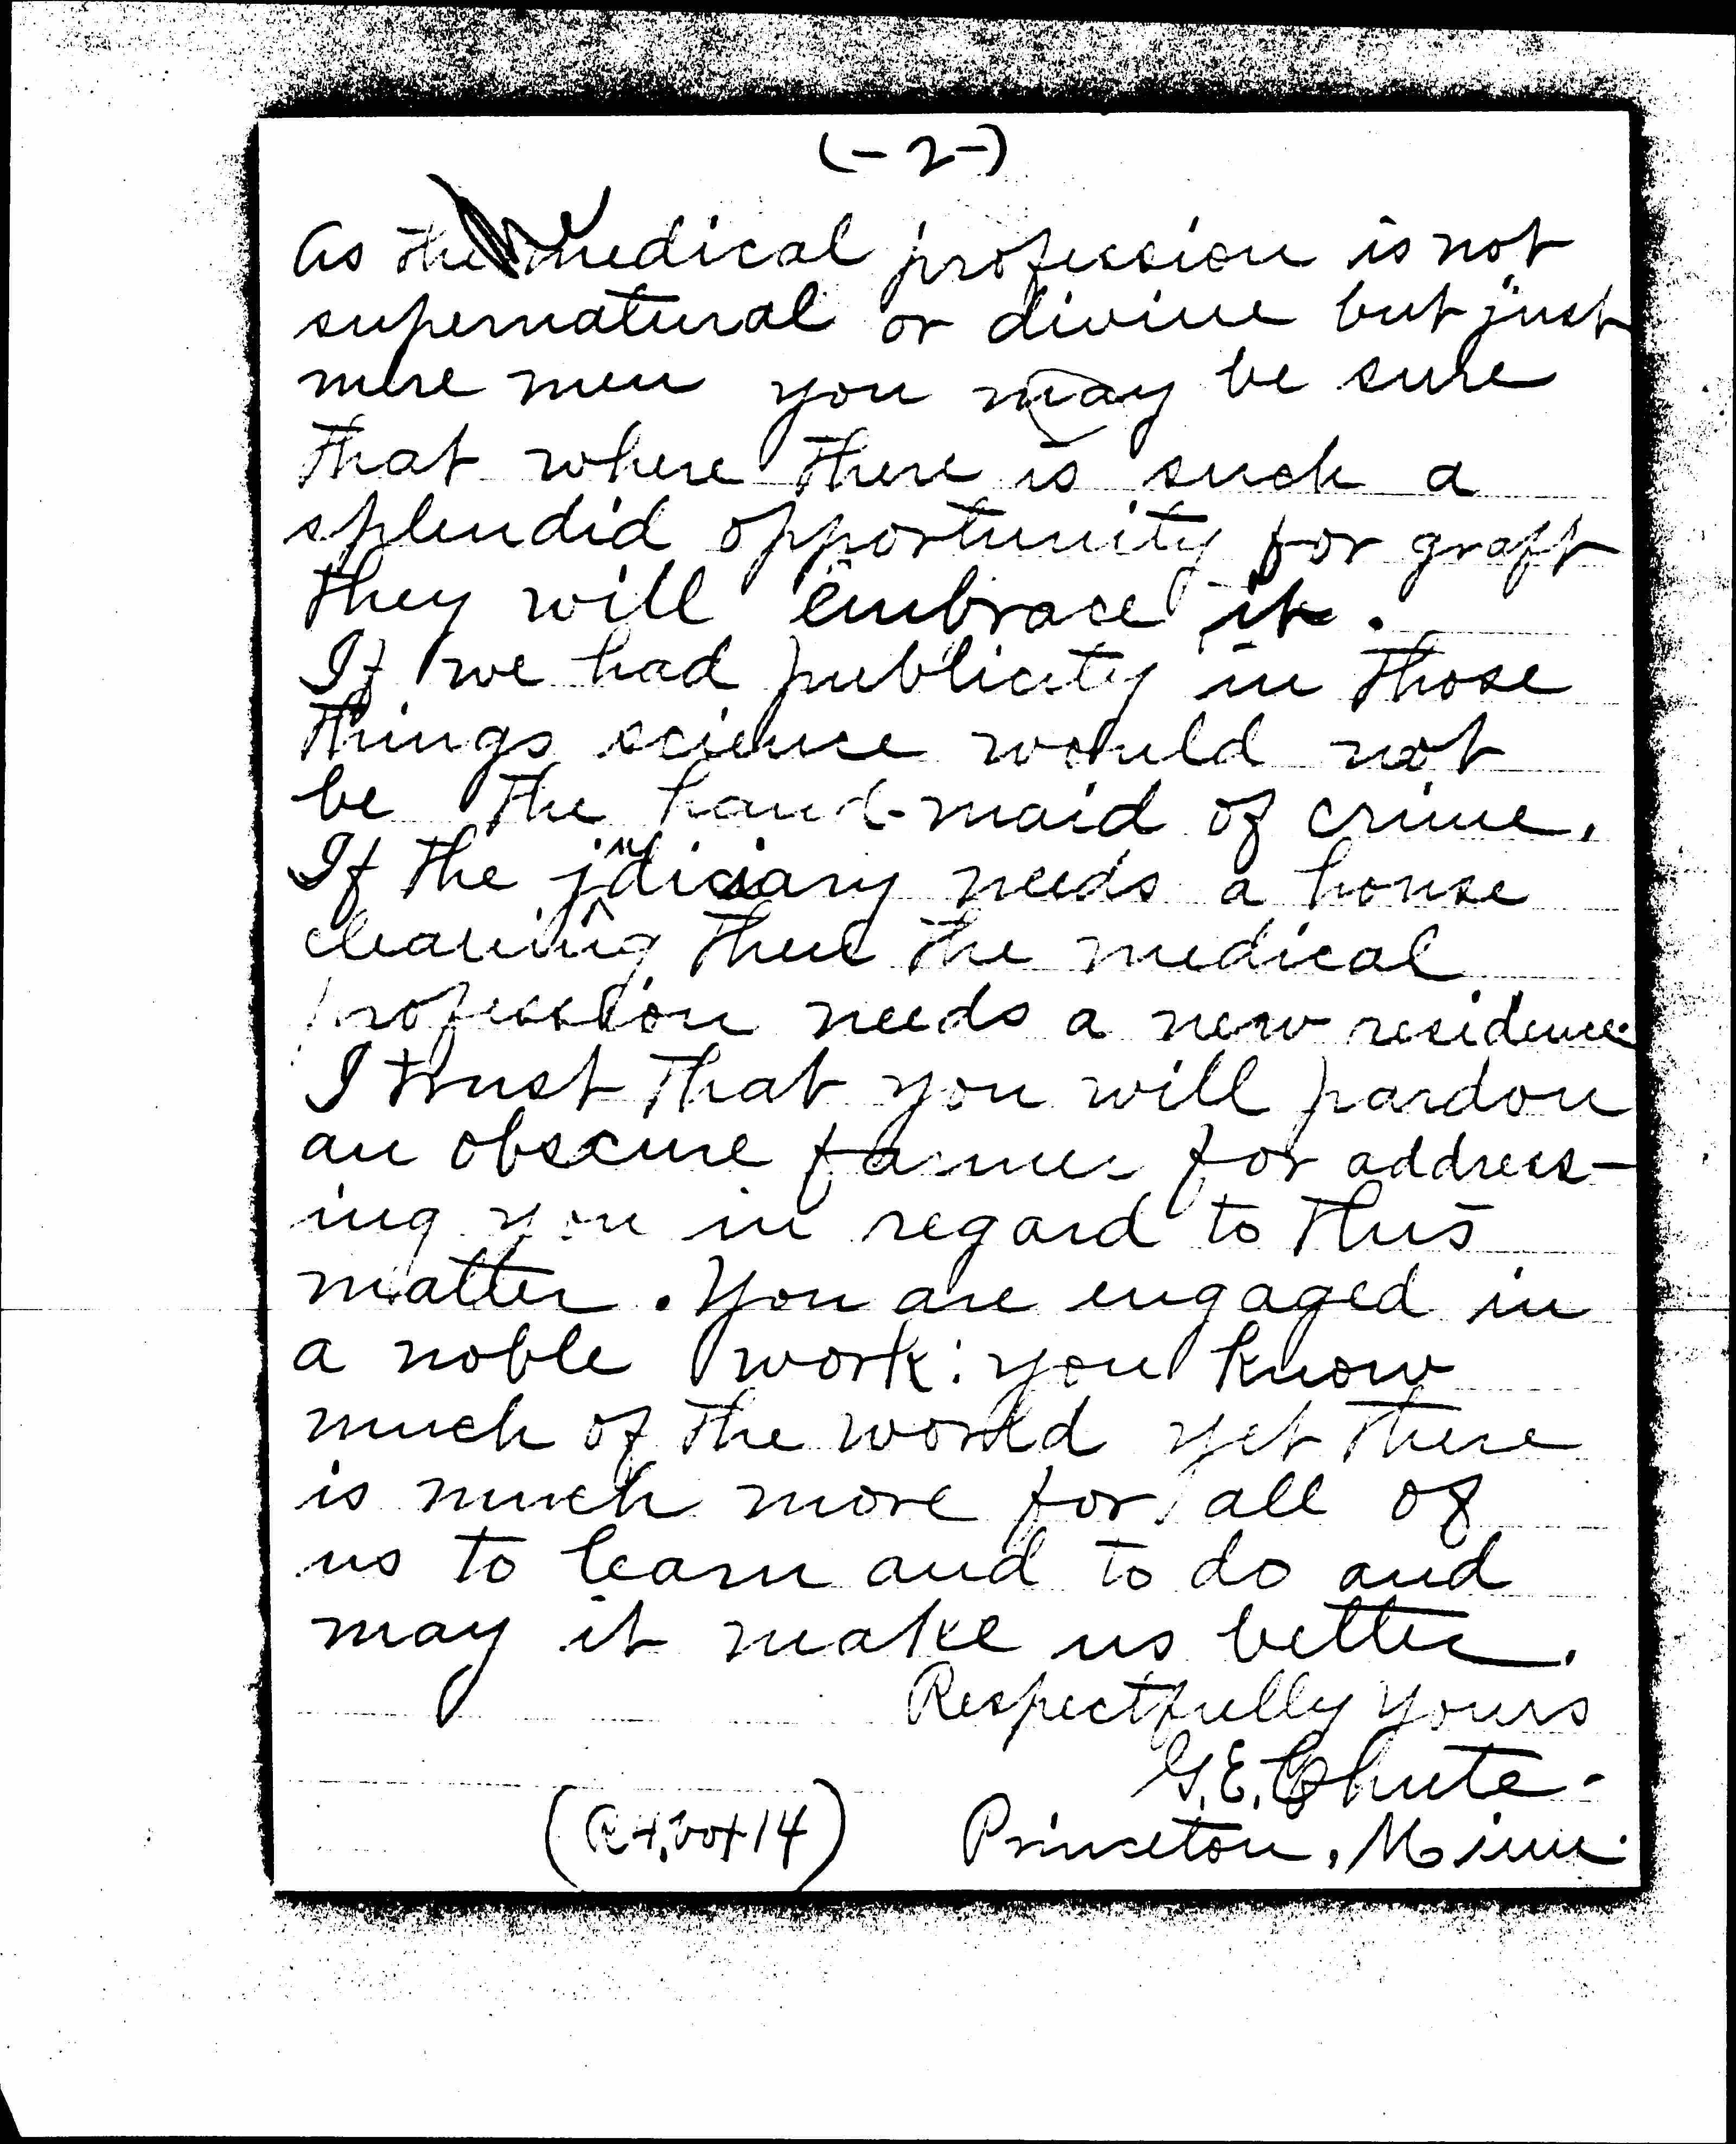 (-2-)
As the medical profession is not
supernatural or divine but just
mere men you may be sure
that where there is such a
splendid opportunity for graft
they will embrace it.
If we had publicity in those
things science would not
be the hand-maid of crime.
If the judiciary needs a house
cleaning then the medical
profession needs a new residence.
I trust that you will pardon
an obscure farmer for address-
ing you in regard to this
matter. You are engaged in
a noble work: you know
much of the world yet there
is much more for all of
us to learn and to do and
may it make us better.
Respectfully yours
G.E. Chute.
(R4, box 14) Princeton, Minn.